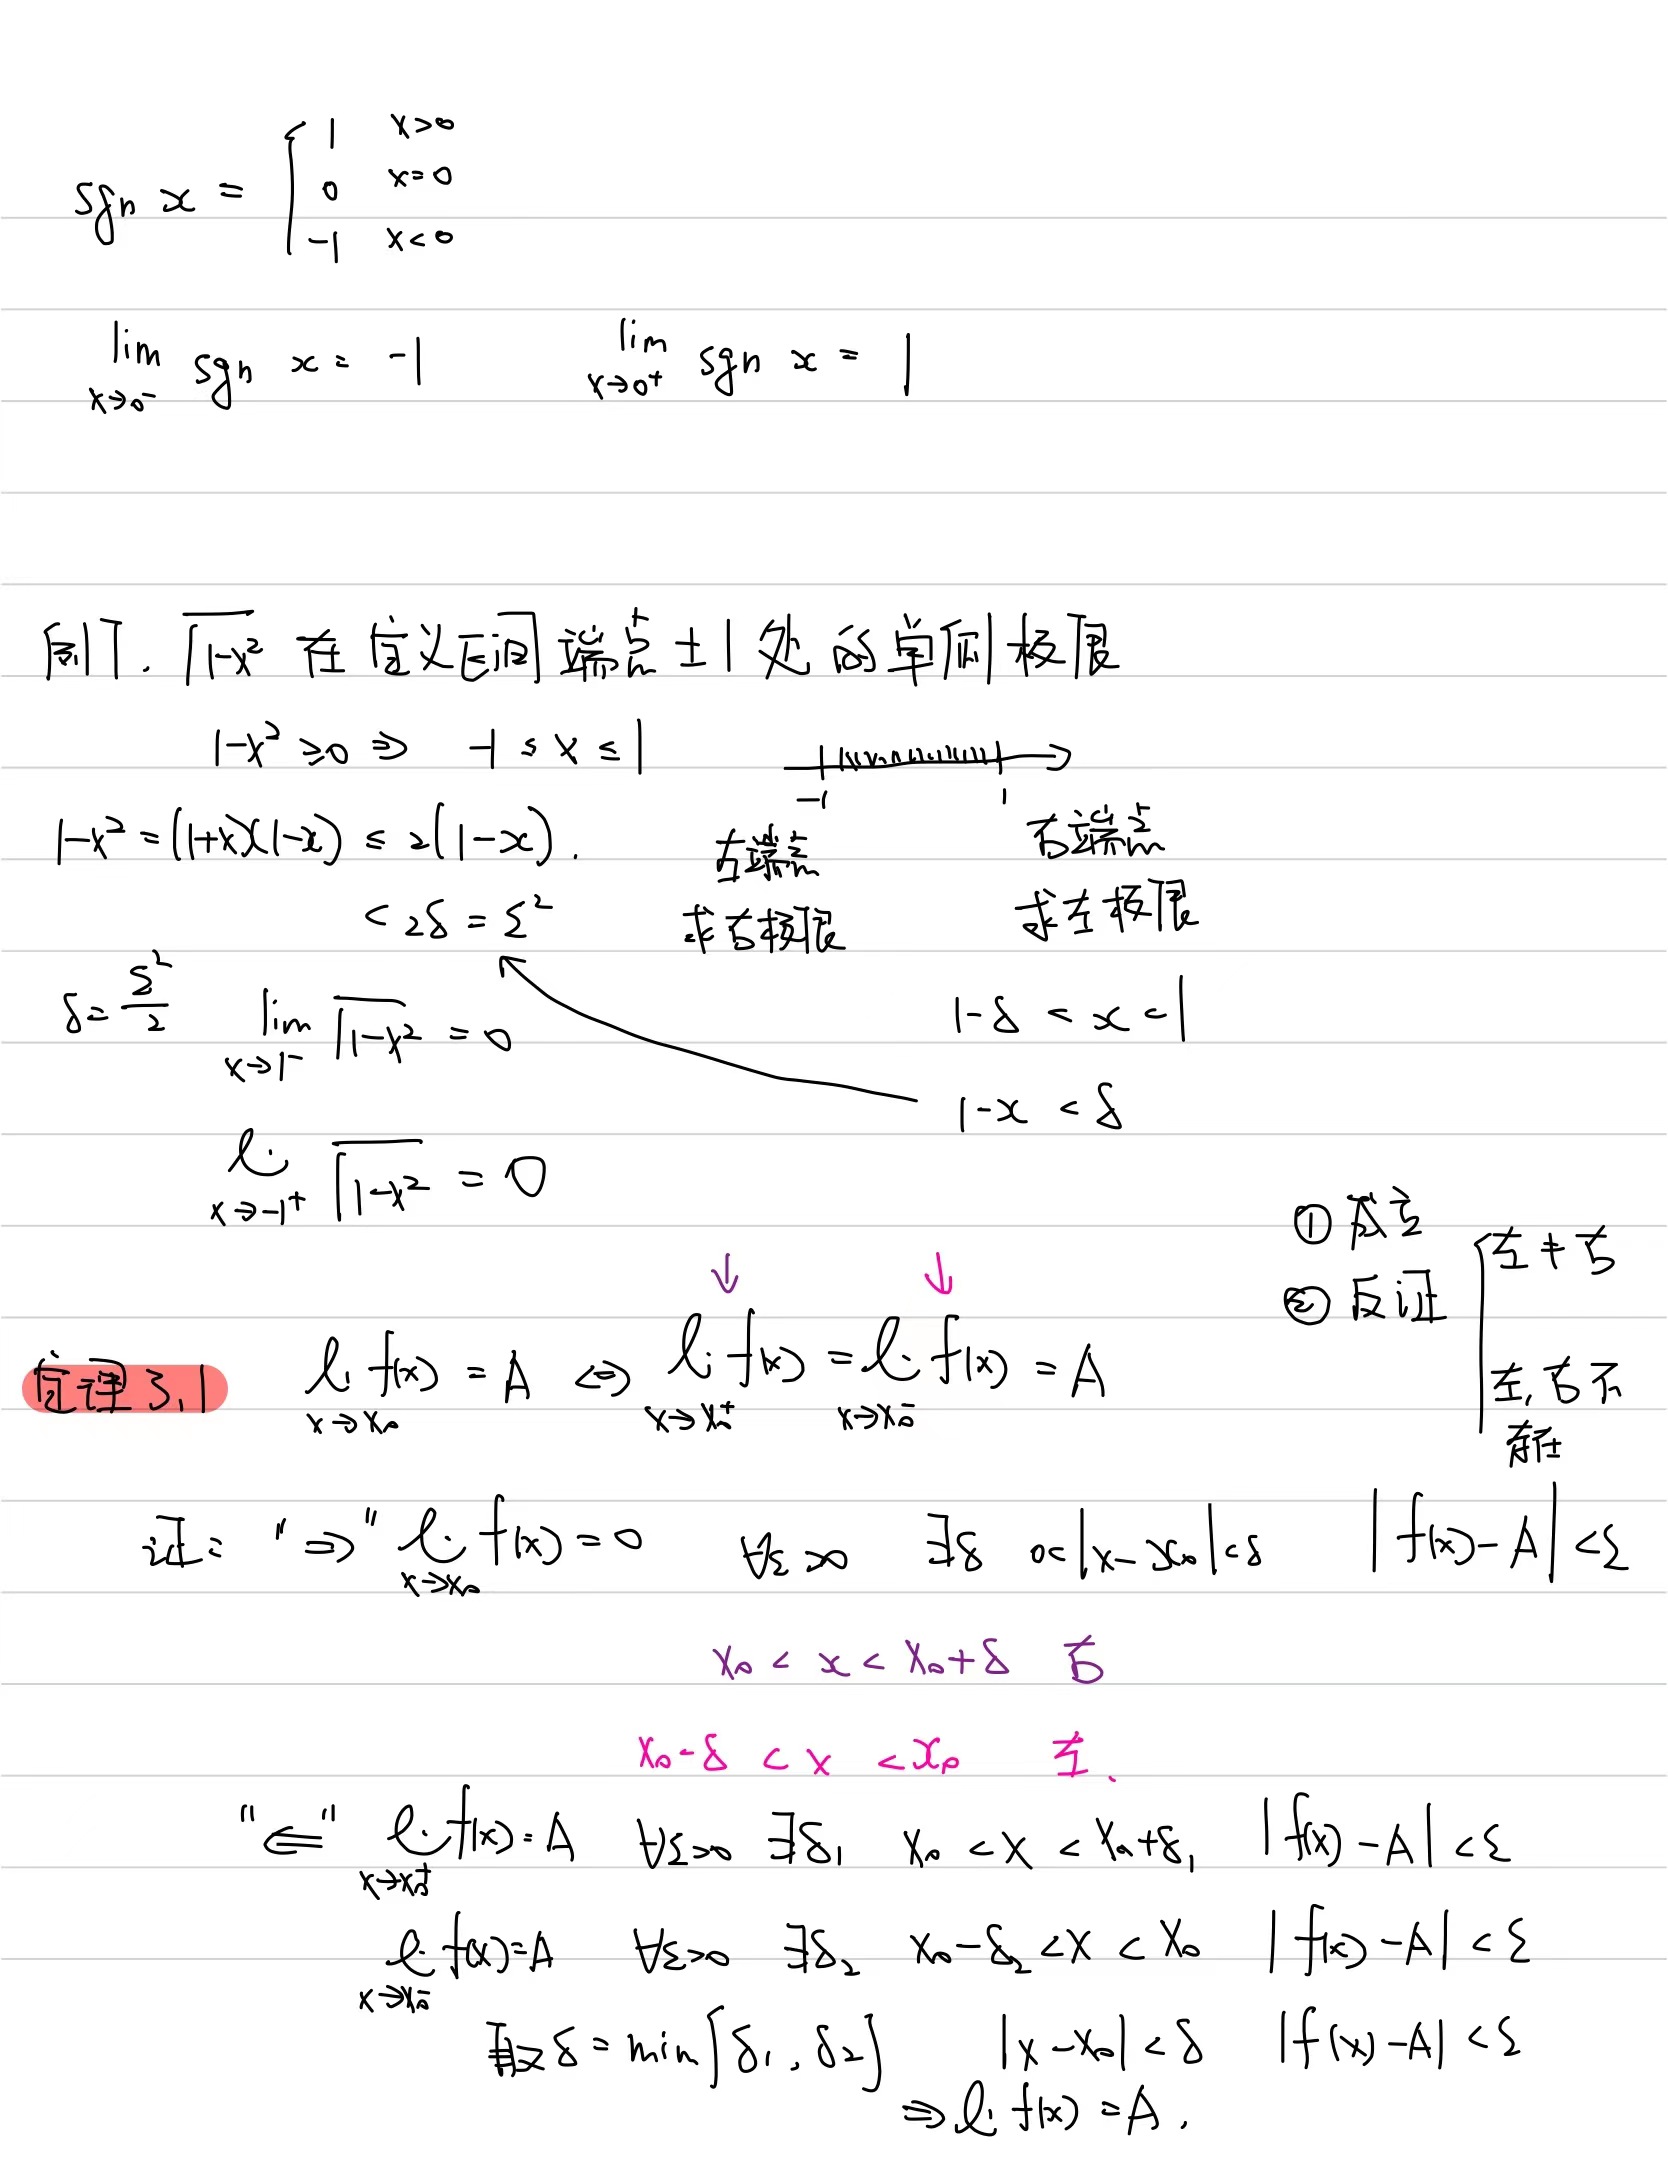 sgn x = { 1 x>0
0 x=0
-1 x<0
lim x→0⁻ sgn x = -1 lim x→0⁺ sgn x = 1
例7. √(1-x²) 在定义区间端点±1处的单侧极限
1-x² ≥0 ⇒ -1 ≤ x ≤ 1
-1 1
1-x² = (1+x)(1-x) ≤ 2(1-x). 左端点 右端点
< 2δ = ε² 求右极限 求左极限
δ = ε²/2 lim x→1⁻ √(1-x²) = 0 1-δ < x < 1
1-x < δ
li x→-1⁺ √(1-x²) = 0
① 成立
② 反证 { 左≠右
左,右不存在
↓ ↓
定理3.1 li x→x₀ f(x) = A ⇔ li x→x₀⁺ f(x) = li x→x₀⁻ f(x) = A
证: "⇒" li x→x₀ f(x) = 0 ∀ε>0 ∃δ 0<|x-x₀|<δ |f(x)-A|<ε
x₀ < x < x₀+δ 右
x₀-δ < x < x₀ 左.
"⇐" li x→x₀⁺ f(x) = A ∀ε>0 ∃δ₁ x₀ < x < x₀+δ₁ |f(x)-A|<ε
li x→x₀⁻ f(x) = A ∀ε>0 ∃δ₂ x₀-δ₂ < x < x₀ |f(x)-A|<ε
取δ = min{δ₁, δ₂} |x-x₀|<δ |f(x)-A|<ε
⇒ li f(x) = A.